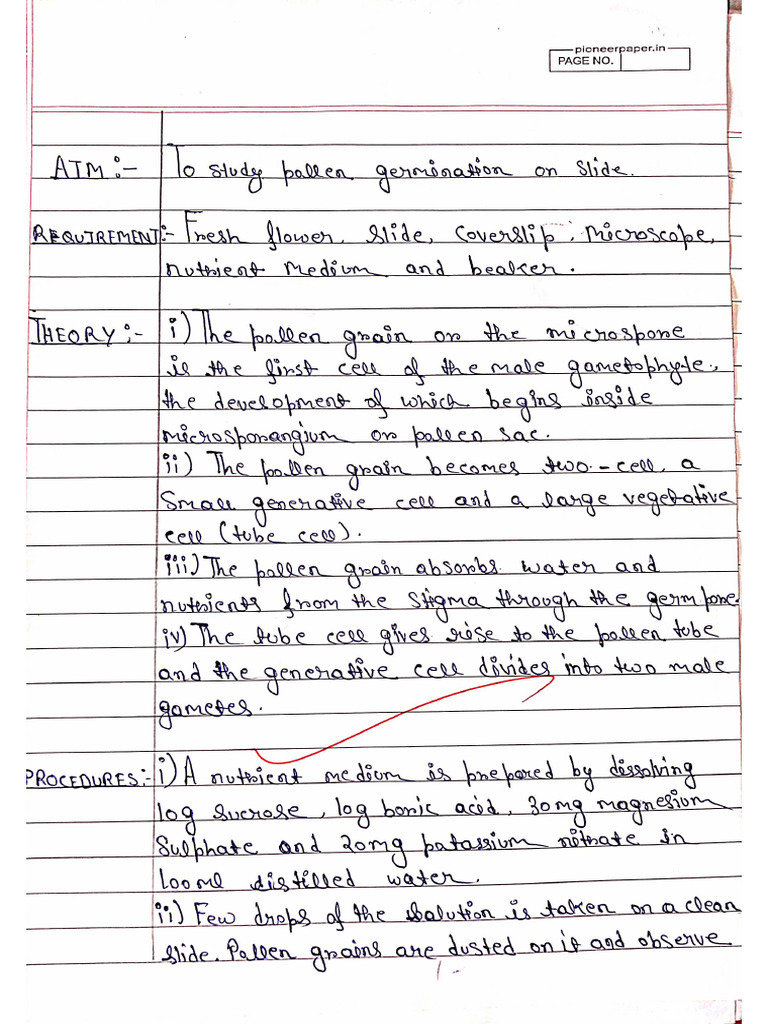 pioneerpaper.in
PAGE NO.
AIM :- To study pollen germination on slide.
REQUIREMENT:- Fresh flower, slide, coverslip, Microscope,
nutrient medium and beaker.
THEORY :- i) The pollen grain or the microspore
is the first cell of the male gametophyte,
the development of which begins inside
microsporangium or pollen sac.
ii) The pollen grain becomes two-cell, a
Small generative cell and a large vegetative
cell (tube cell).
iii) The pollen grain absorbs water and
nutrients from the stigma through the germ pore.
iv) The tube cell gives rise to the pollen tube
and the generative cell divides into two male
gametes.
PROCEDURES:- i) A nutrient medium is prepared by dissolving
10g sucrose, 10g boric acid, 30mg magnesium
Sulphate and 20mg patassium nitrate in
100ml distilled water.
ii) Few drops of the solution is taken on a clean
slide. Pollen grains are dusted on it and observe.